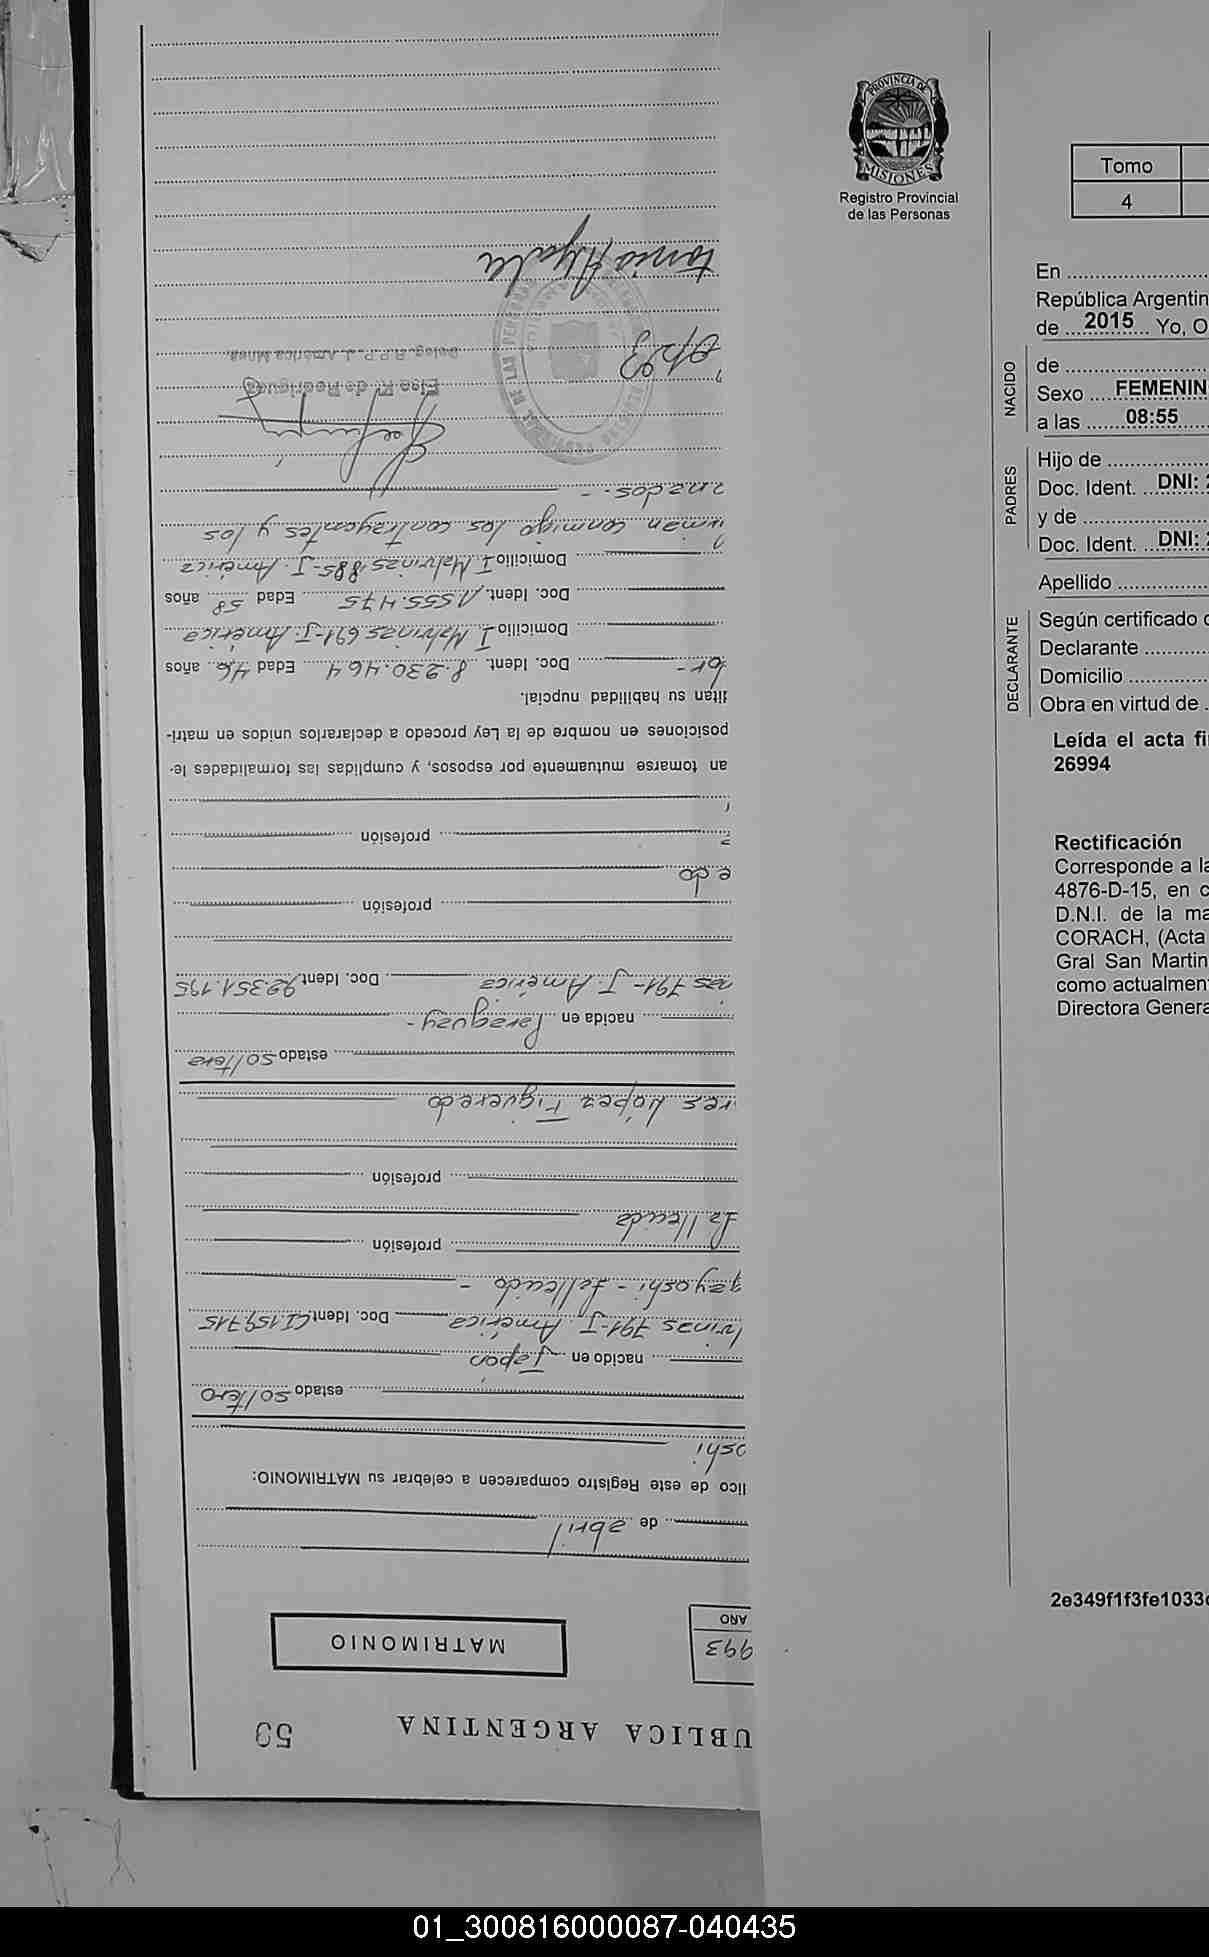 UBLICA ARGENTINA 59
993
AÑO
MATRIMONIO
de abril
lico de este Registro comparecen a celebrar su MATRIMONIO:
oshi
estado soltero
nacido en Japón
vinas 791-J. América Doc. Ident. CI.159.715
geyoshi - fallecido -
profesión
fallecida
profesión
res López Figueredo
estado soltera
nacida en Paraguay -
nas 791- J. América Doc. Ident. 92.351.195
profesión
edo
profesión
an tomarse mutuamente por esposos, y cumplidas las formalidades le-
posiciones en nombre de la Ley procedo a declararlos unidos en matri-
titan su habilidad nupcial.
or- Doc. Ident. 8.230.464 Edad 46 años
Domicilio I. Malvinas 691-J. América
Doc. Ident. 1.555.475 Edad 58 años
Domicilio I. Malvinas 885-J. América
firman conmigo los contrayentes y los
nados.-
Elsa R. de Rodríguez
Deleg. R.P.P. J. América Mnes.
93
PROVINCIA DE
MISIONES
Registro Provincial
de las Personas
Tomo
4
En
República Argentin
de 2015 Yo, O
NACIDO
de
Sexo FEMENIN
a las 08:55
PADRES
Hijo de
Doc. Ident. DNI: 2
y de
Doc. Ident. DNI: 2
Apellido
DECLARANTE
Según certificado d
Declarante
Domicilio
Obra en virtud de
Leída el acta fi
26994
Rectificación
Corresponde a la
4876-D-15, en c
D.N.I. de la ma
CORACH, (Acta
Gral San Martin
como actualmen
Directora Genera
2e349f1f3fe1033
01_300816000087-040435